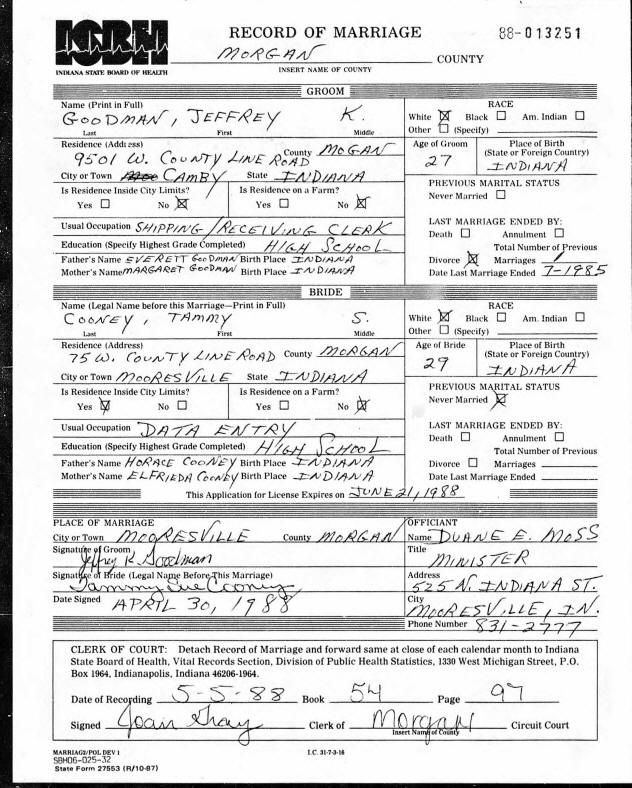 ISBH
INDIANA STATE BOARD OF HEALTH
RECORD OF MARRIAGE
88-013251
MORGAN COUNTY
INSERT NAME OF COUNTY
GROOM
Name (Print in Full)
GOODMAN, JEFFREY K.
Last First Middle
RACE
White ☒ Black ☐ Am. Indian ☐
Other ☐ (Specify)
Residence (Address)
9501 W. COUNTY LINE ROAD County MOGAN
City or Town CAMBY State INDIANA
Age of Groom
27
Place of Birth
(State or Foreign Country)
INDIANA
Is Residence Inside City Limits?
Yes ☐ No ☒
Is Residence on a Farm?
Yes ☐ No ☒
PREVIOUS MARITAL STATUS
Never Married ☐
Usual Occupation SHIPPING/RECEIVING CLERK
Education (Specify Highest Grade Completed) HIGH SCHOOL
Father's Name EVERETT GOODMAN Birth Place INDIANA
Mother's Name MARGARET GOODMAN Birth Place INDIANA
LAST MARRIAGE ENDED BY:
Death ☐ Annulment ☐
Total Number of Previous
Divorce ☒ Marriages 1
Date Last Marriage Ended 7-1985
BRIDE
Name (Legal Name before this Marriage—Print in Full)
COONEY, TAMMY S.
Last First Middle
RACE
White ☒ Black ☐ Am. Indian ☐
Other ☐ (Specify)
Residence (Address)
75 W. COUNTY LINE ROAD County MORGAN
City or Town MOORESVILLE State INDIANA
Age of Bride
29
Place of Birth
(State or Foreign Country)
INDIANA
Is Residence Inside City Limits?
Yes ☒ No ☐
Is Residence on a Farm?
Yes ☐ No ☒
PREVIOUS MARITAL STATUS
Never Married ☒
Usual Occupation DATA ENTRY
Education (Specify Highest Grade Completed) HIGH SCHOOL
Father's Name HORACE COONEY Birth Place INDIANA
Mother's Name ELFRIEDA COONEY Birth Place INDIANA
LAST MARRIAGE ENDED BY:
Death ☐ Annulment ☐
Total Number of Previous
Divorce ☐ Marriages
Date Last Marriage Ended
This Application for License Expires on JUNE 21, 1988
PLACE OF MARRIAGE
City or Town MOORESVILLE County MORGAN
Signature of Groom
Jeffrey K. Goodman
Signature of Bride (Legal Name Before This Marriage)
Tammy Sue Cooney
Date Signed APRIL 30, 1988
OFFICIANT
Name DUANE E. MOSS
Title
MINISTER
Address
525 N. INDIANA ST.
City
MOORESVILLE, IN.
Phone Number 831-2777
CLERK OF COURT: Detach Record of Marriage and forward same at close of each calendar month to Indiana
State Board of Health, Vital Records Section, Division of Public Health Statistics, 1330 West Michigan Street, P.O.
Box 1964, Indianapolis, Indiana 46206-1964.
Date of Recording 5-5-88 Book 54 Page 97
Signed Joan Gray Clerk of Morgan Circuit Court
Insert Name of County
MARRIAG2/POL DEV 1
SBH06-025-32
State Form 27553 (R/10-87)
I.C. 31-7-3-16